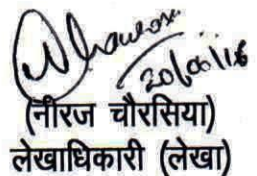 20/06/16
(नीरज चौरसिया)
लेखाधिकारी (लेखा)